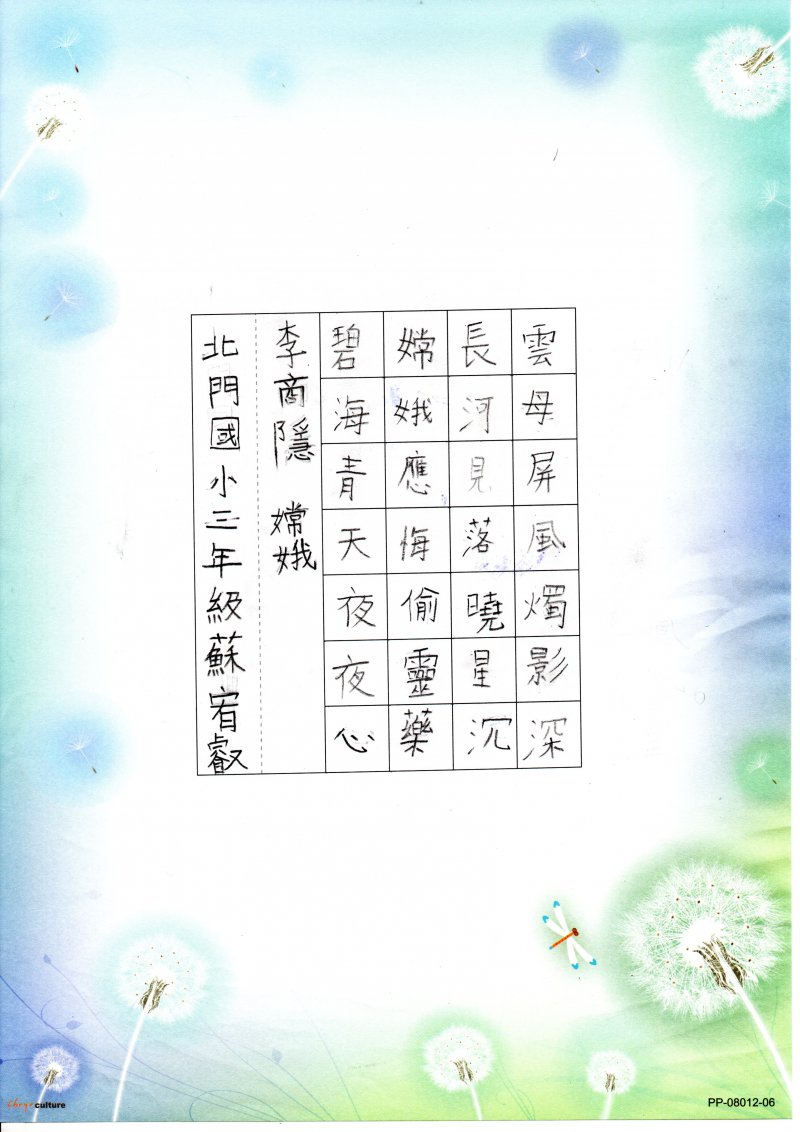 雲母屏風燭影深
長河見落曉星沉
嫦娥應悔偷靈藥
碧海青天夜夜心
李商隱 嫦娥
北門國小三年級蘇宥叡
culture
PP-08012-06